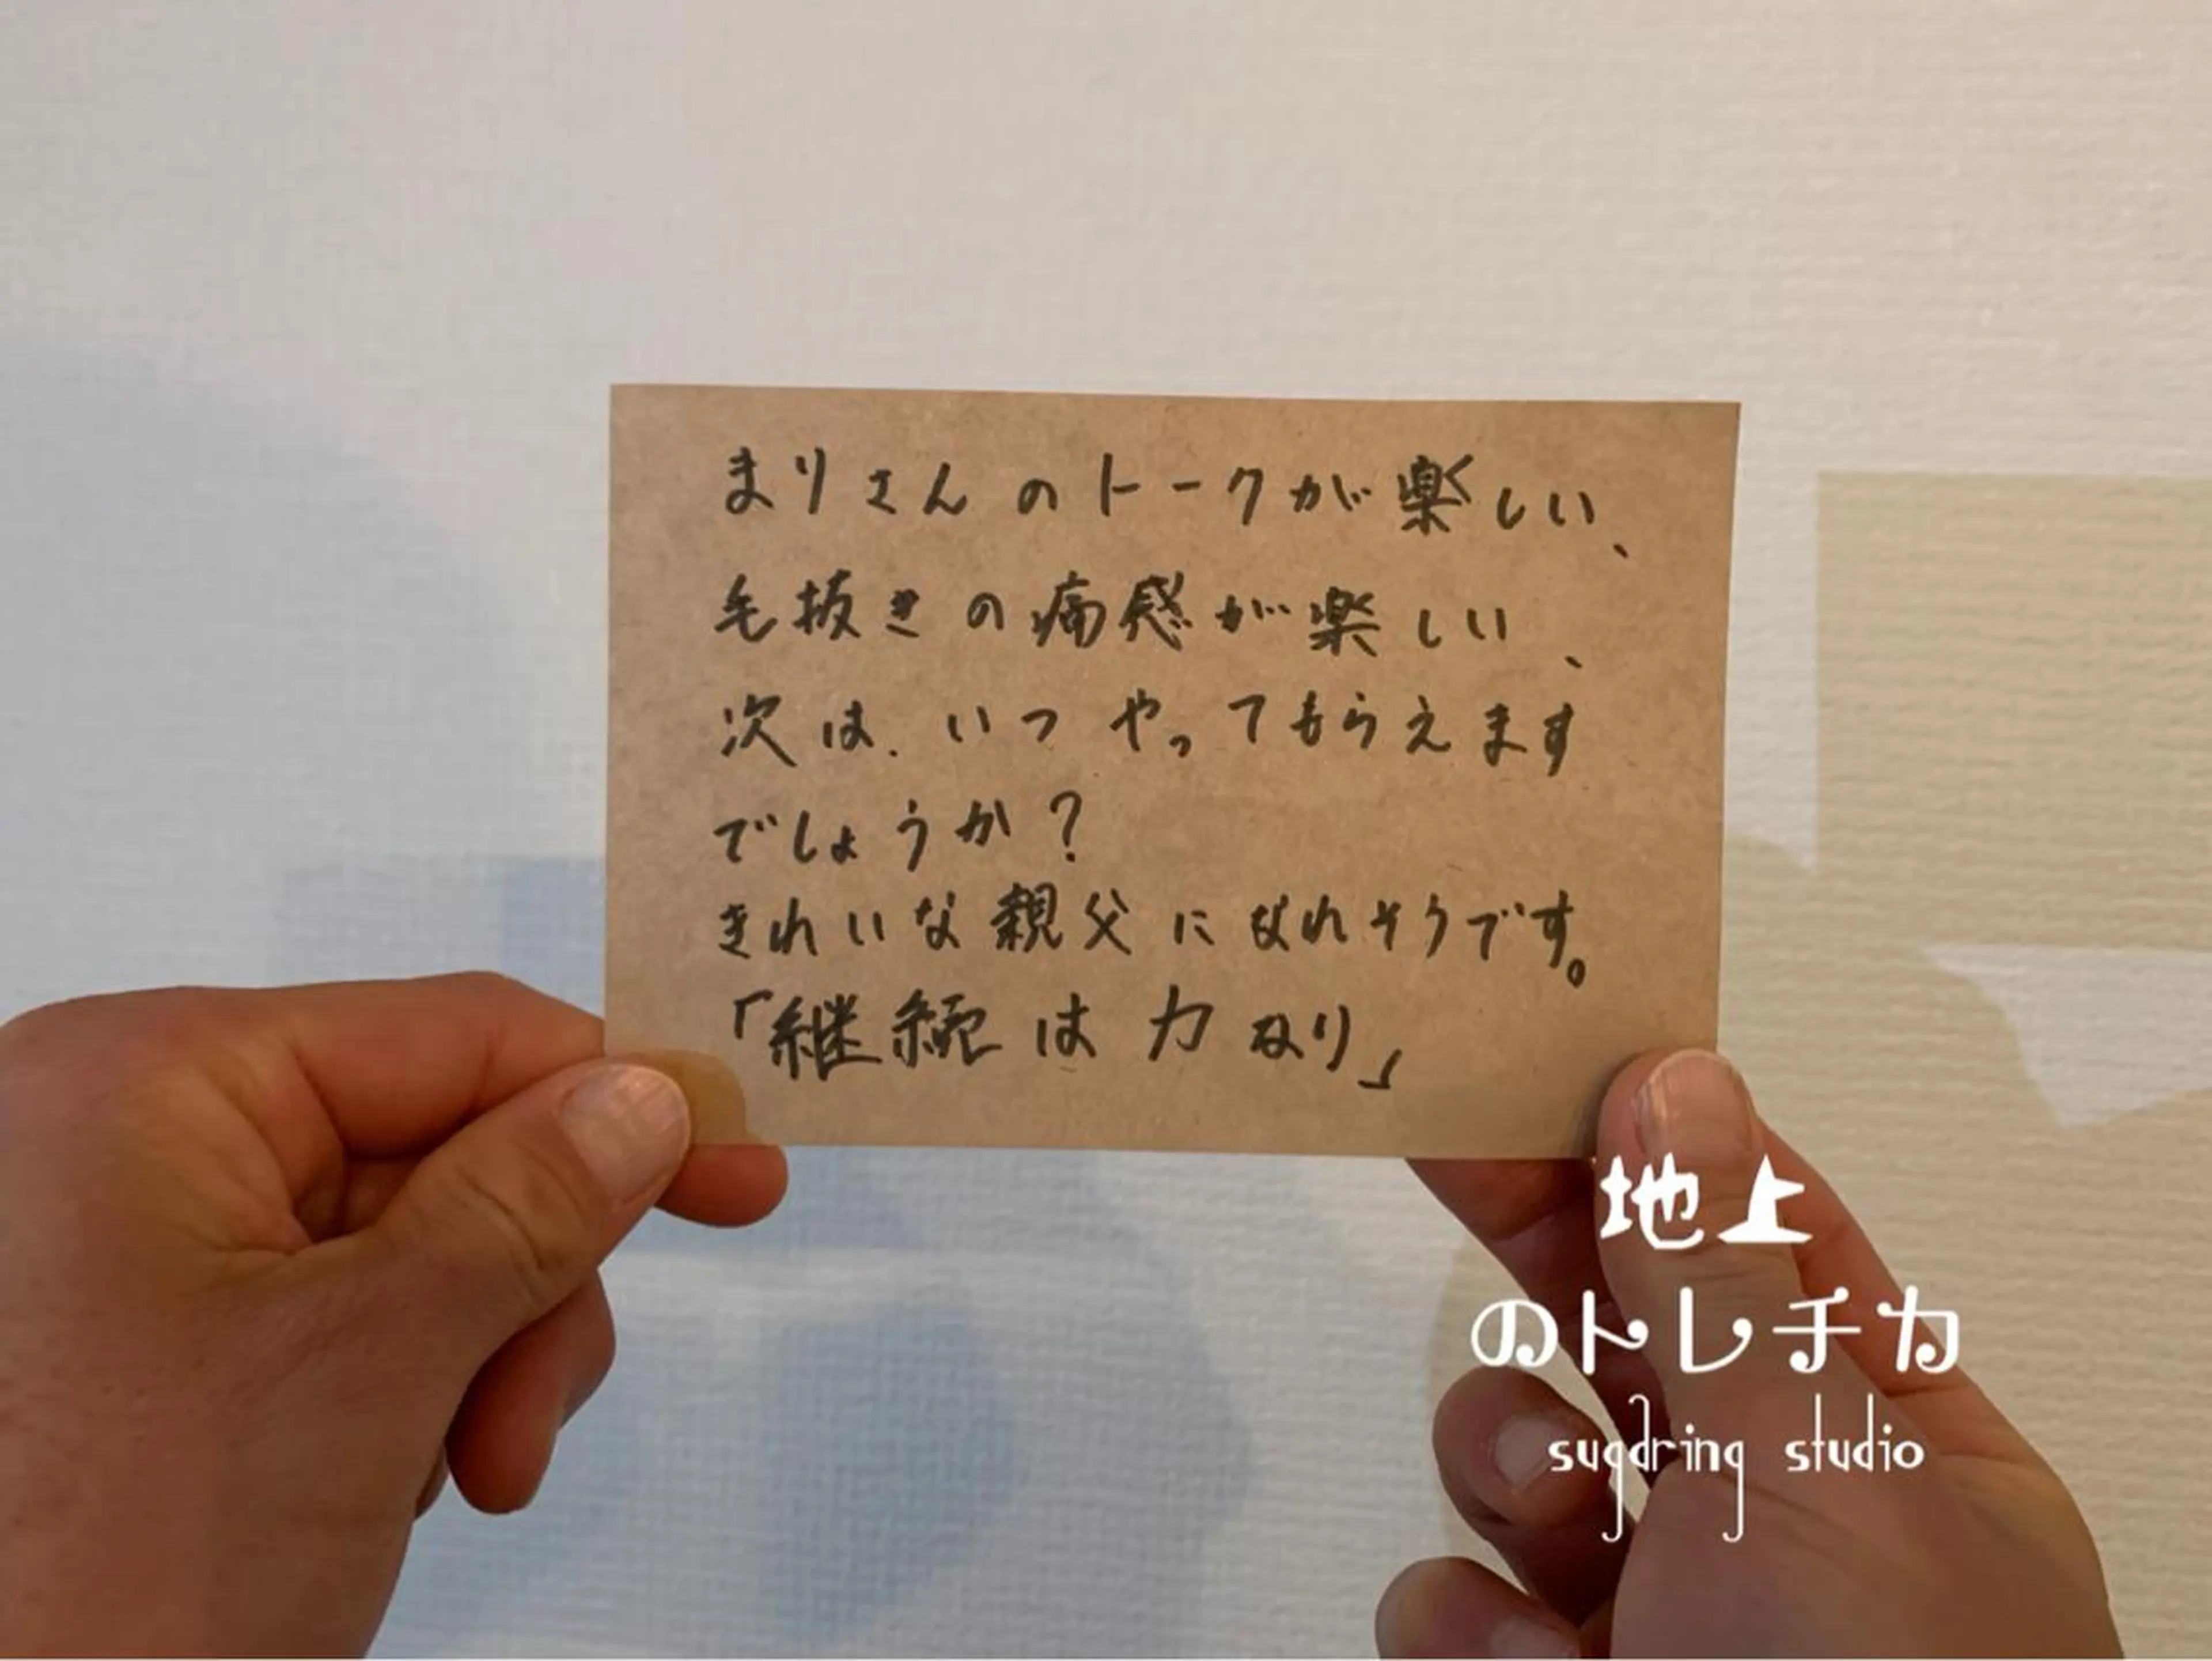 まりさんのトークが楽しい、
毛抜きの痛感が楽しい、
次は、いつやってもらえます
でしょうか？
きれいな親父になれそうです。
「継続は力なり」
地上
のトレチカ
sugaring studio